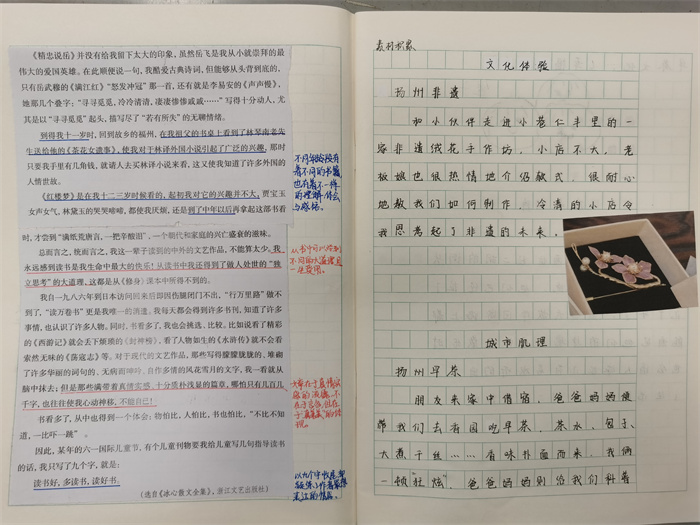 《精忠说岳》并没有给我留下太大的印象，虽然岳飞是我从小就崇拜的最
伟大的爱国英雄。在此顺便说一句，我酷爱古典诗词，但能够从头背到底的，
只有岳武穆的《满江红》“怒发冲冠”那一首，还有就是李易安的《声声慢》，
她那几个叠字：“寻寻觅觅，冷冷清清，凄凄惨惨戚戚……”写得十分动人，尤
其是以“寻寻觅觅”起头，描写尽了“若有所失”的无聊情绪。
到得我十一岁时，回到故乡的福州，在我祖父的书桌上看到了林琴南老先
生送给他的《茶花女遗事》，使我对于林译外国小说引起了广泛的兴趣，那时
只要我手里有几角钱，就请人去买林译小说来看，这又使我知道了许多外国的
人情世故。
《红楼梦》是在我十二三岁时候看的，起初我对它的兴趣并不大，贾宝玉
女声女气，林黛玉的哭哭啼啼，都使我厌烦，还是到了中年以后再拿起这部书看
时，才尝到“满纸荒唐言，一把辛酸泪”，一个朝代和家庭的兴亡盛衰的滋味。
总而言之，统而言之，我这一辈子读到的中外的文艺作品，不能算太少。我
永远感到读书是我生命中最大的快乐！从读书中我还得到了做人处世的“独
立思考”的大道理，这都是从《修身》课本中所得不到的。
我自一九八六年到日本访问回来后即因伤腿闭门不出，“行万里路”做不
到了，“读万卷书”更是我唯一的消遣。我每天都会得到许多书刊，知道了许多
事情，也认识了许多人物。同时，书看多了，我也会挑选，比较。比如说看了精彩
的《西游记》就会丢下烦琐的《封神榜》，看了人物栩栩如生的《水浒传》就不会看
索然无味的《荡寇志》等。对于现代的文艺作品，那些写得朦朦胧胧的、堆砌
了许多华丽的词句的、无病而呻吟，自作多情的风花雪月的文字，我一看就从
脑中抹去；但是那些满带着真情实感、十分质朴浅显的篇章，哪怕只有几百几
千字，也往往使我心动神移，不能自已！
书看多了，从中也得到一个体会：物怕比，人怕比，书也怕比，“不比不知
道，一比吓一跳”。
因此，某年的六一国际儿童节，有个儿童刊物要我给儿童写几句指导读书
的话，我只写了九个字，就是：
读书好，多读书，读好书。
（选自《冰心散文全集》，浙江文艺出版社）
不同年龄段有
着不同的书籍
也有着不一样
的理解、体会
与感悟。
素材积累
文化体验
扬州非遗
和小伙伴走进小巷仁丰里的一
家非遗绒花手作坊，小店不大，老
板娘也很热情地介绍款式，很耐心
地教我们如何制作，冷清的小店令
我思考起了非遗的未来。
城市肌理
扬州早茶
朋友来家中借宿，爸爸妈妈便
带我们去冶园吃早茶，茶水、包子、
大煮干丝……香味扑面而来，我俩
一顿“狂炫”，爸爸妈妈则给我们科普